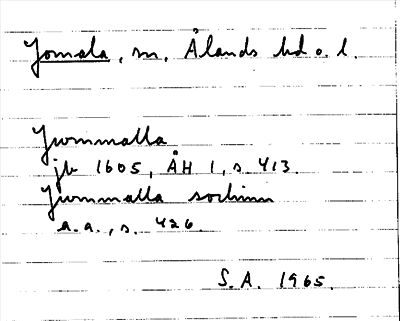 Jomala, sn, Ålands hd o. l.
Jummalla
jb 1605, ÅH 1, s. 413.
Jummalla sochnn
a.a., s. 426.
S.A. 1965.